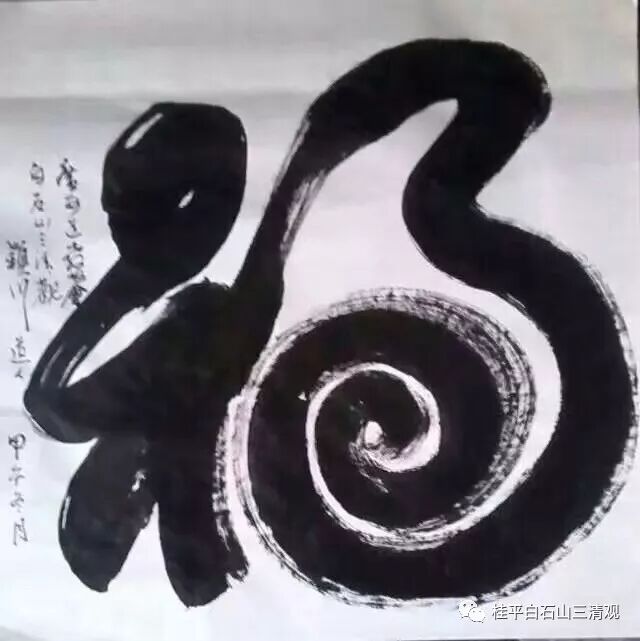 福
廣西道教協會
白石山三清觀
穎川道人 甲午冬月
桂平白石山三清观